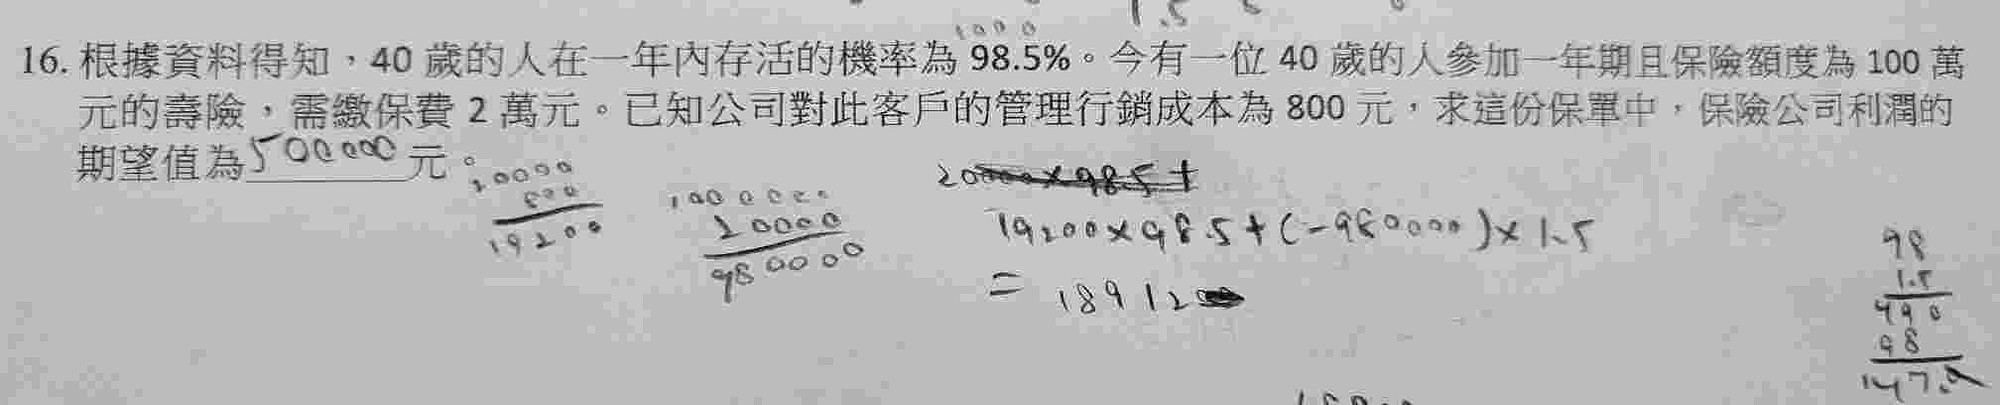 1.5
1000
16. 根據資料得知，40 歲的人在一年內存活的機率為 98.5%。今有一位 40 歲的人參加一年期且保險額度為 100 萬
元的壽險，需繳保費 2 萬元。已知公司對此客戶的管理行銷成本為 800 元，求這份保單中，保險公司利潤的
期望值為500000元。
20000
800
19200
1000000
20000
980000
19200×98.5+(-980000)×1.5
= 18912
98
1.5
490
98
147.0